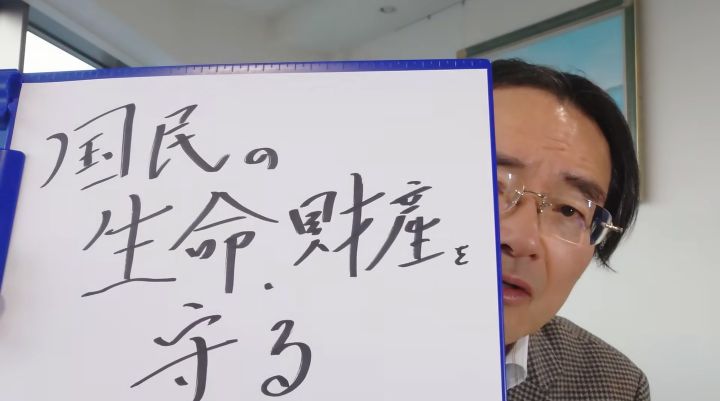 国民の
生命.財産を
守る